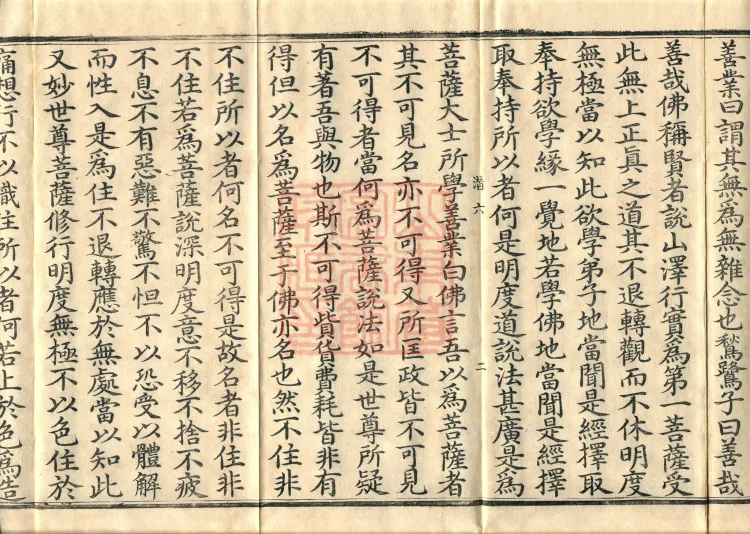 善業曰謂其無爲無雜念也鶖鷺子曰善哉
善哉佛稱賢者說山澤行實爲第一菩薩受
此無上正眞之道其不退轉觀而不休明度
無極當以知此欲學弟子地當聞是經擇取
奉持欲學緣一覺地若學佛地當聞是經擇
取奉持所以者何是明度道說法甚廣是爲
潛 六 二
菩薩大士所學善業曰佛言吾以爲菩薩者
其不可見名亦不可得又所匡政皆不可見
不可得者當何爲菩薩說法如是世尊所疑
有著吾與物也斯不可得貲貨費耗皆非有
得但以名爲菩薩至于佛亦名也然不住非
不住所以者何名不可得是故名者非住非
不住若爲菩薩說深明度意不移不捨不疲
不息不有惡難不驚不怛不以恐受以體解
而性入是爲住不退轉應於無處當以知此
又妙世尊菩薩修行明度無極不以色住於
痛想行不以識住所以者何若止於色爲造